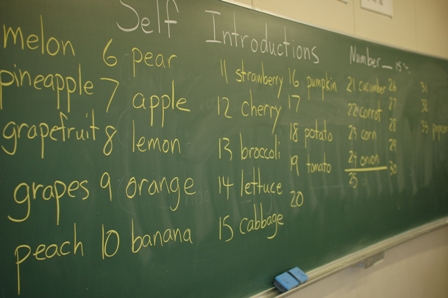 Self Introductions
Number
melon
pineapple
grapefruit
grapes
peach
6 pear
7 apple
8 lemon
9 orange
10 banana
11 strawberry
12 cherry
13 broccoli
14 lettuce
15 cabbage
16 pumpkin
17
18 potato
19 tomato
20
21 cucumber
22 carrot
23 corn
24 onion
25
26
27
28
29
30
31
32
33